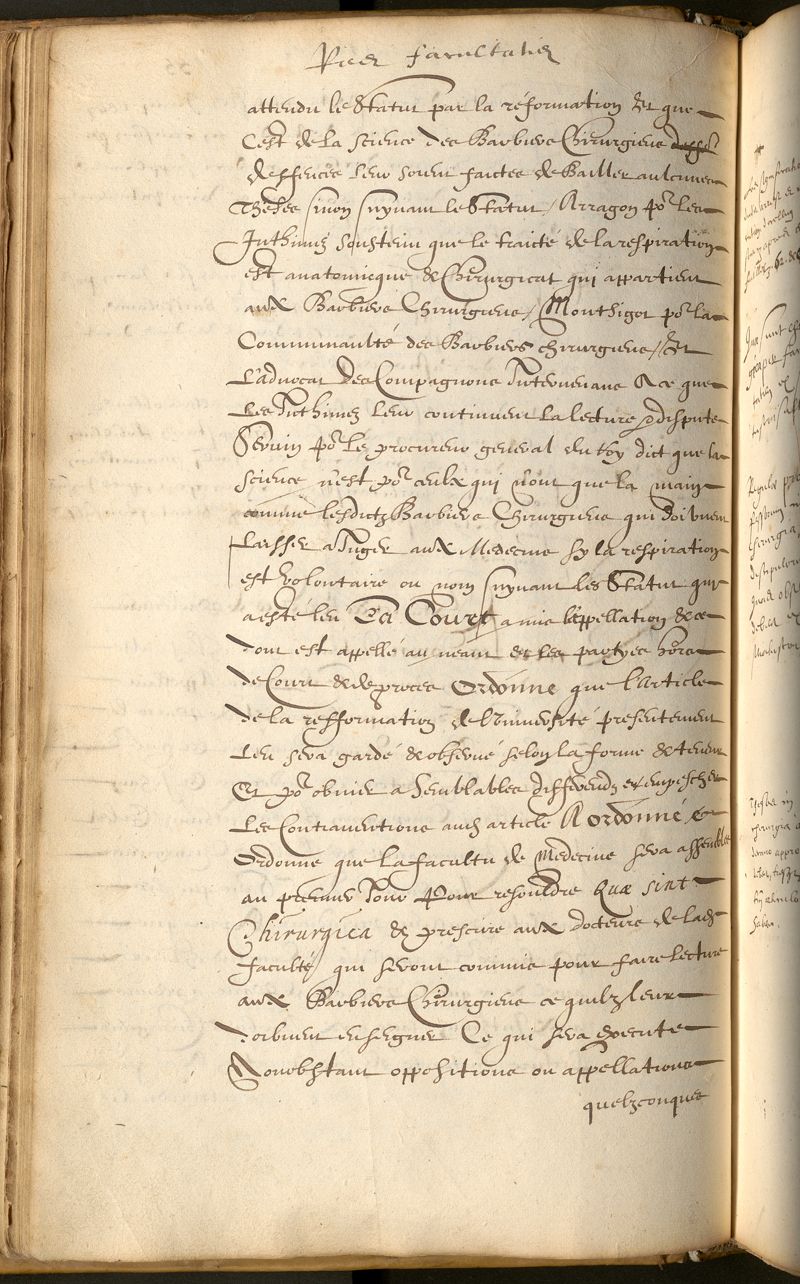 facultatis
attendu le Statut par la réformation Et que
C'est de la science des Barbiers Chirurgiens
deffences leur soient faictes de Bailler aulcunes
Theses sinon suyvant le Statut / Arragon po.r les
Inthimez soustenu que le traicté de la respiration
est anatomicque & Chirurgical qui appartient
aux Barbiers Chirurgiens / Monthigot po.r la
Communaulté des Barbiers chirurgiens / Et
L'advocat des Compagnons Intervenans A ce que
Les Inthimez leur continuent La lecture & dispute
Servin po.r le procureur general du Roy dict que la
science n'est po.r ceulx qui n'ont que la main
comme lesdictz Barbiers Chirurgiens qui doibvent
Laisser a Juger aux Medecins sy la respiration
est volontaire ou non suyvant les Statut qui
a esté leu La Court a mis l'appellation & ce
dont est appellé au neant & les partyes hors
de Court & de proces Ordonne que l'article
de la refformation de l'Université presentement
Leu sera gardé & observé selon la forme & teneur
Et po.r obvier a Semblables differends & empescher
Les Contraventions aud. article A ordonné &
Ordonne que la faculté de Medecine sera assemblée
au premier Jour Pour resouldre Quæ sint
Chirurgica & prescrire aux docteurs de lad.
faculté qui seront commis pour faire lecture
aux Barbiers Chirurgiens ce qu'ilz leur
doibvent enseigner Ce qui sera executé
Nonobstant oppositions ou appellations
quelzconques